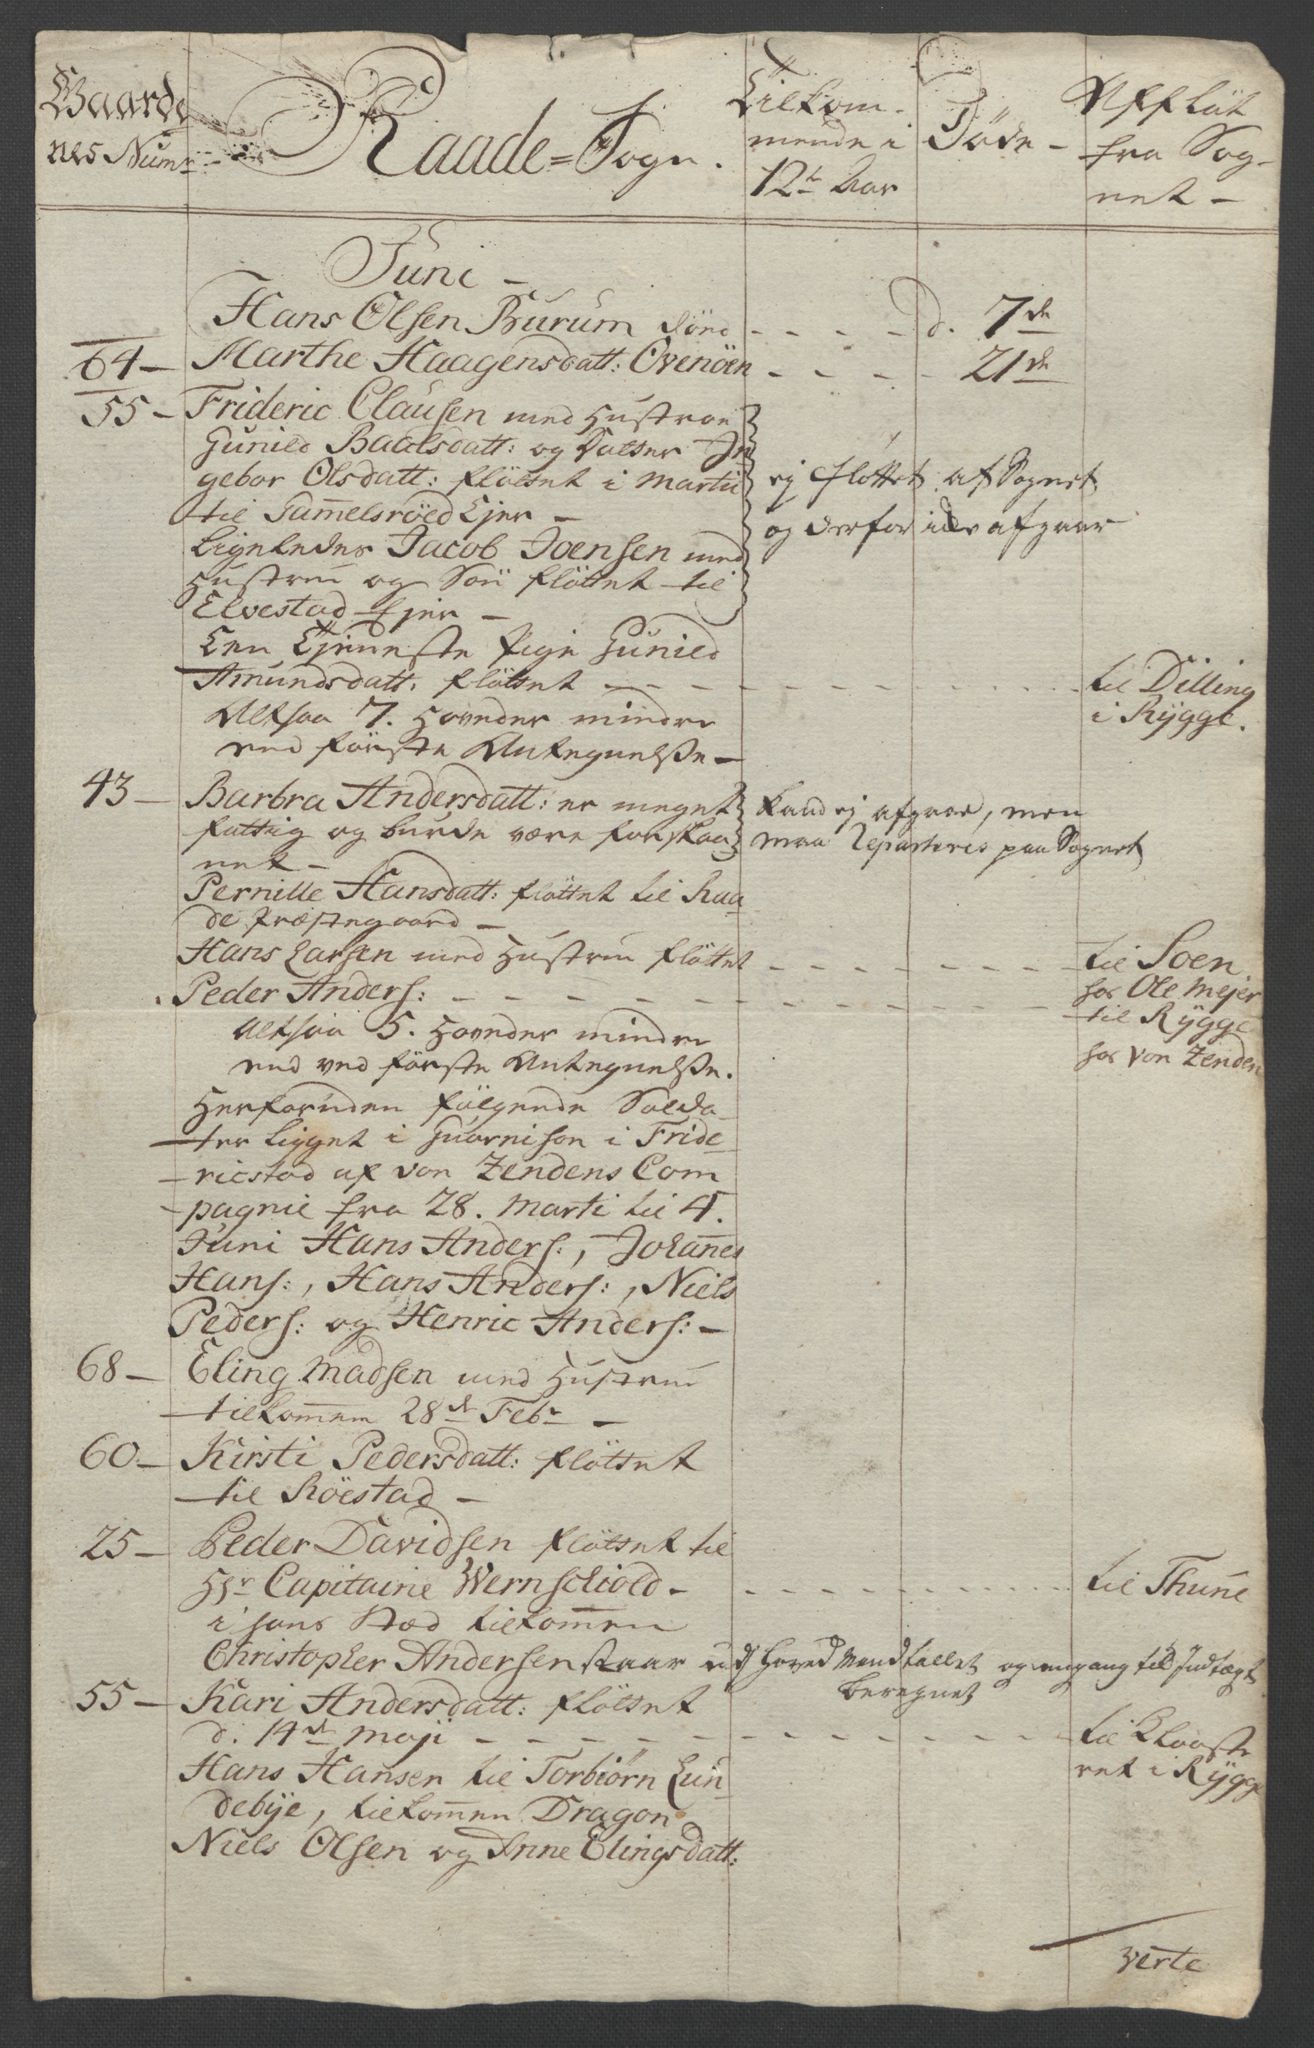 Gaarde
nes Num:
Raade=Sogn.
Tilkom-
mende i
12te Aar
Döde-
Afflöt
fra Sog-
net -
Juni -
Hans Olsen Burum döed - - - - d. 7de
64 - Marthe Haagensdatt: Ovenöen - - - - 21de
55 - Frideric Clausen med Hustroe
Gunild Baalsdatt: og Datter In
gebor Olsdatt: flöttet i Martii
til Gam̄elsröed Ejer -
ej flöttet af Sognet
og derfor afgaar
Ligeledes Jacob Joensen med
Hustru og Sön flöttet til
Elvestad Ejer -
Een Tjeneste Pige Gunild
Amundsdatt: flöttet - - - - - - - - til Dilling
i Rÿgge.
Altsaa 7. Hoveder mindre
end förste Antegnelße -
43 - Barbra Andersdatt: er meget
fattig og burde være forskaa
net -
kand ej afgaae, men
maa Reparteres paa Sognet
Pernille Hansdatt: flöttet til Raa
de Præstegaard -
Hans Larsen med Hustru flöttet - - - - - - - til Soen
hos Ole Mejer
Peder Anders: - - - - - - - - - - til Rÿgge
hos von Zenden
Altsaa 5. Hoveder mindre
end ved förste Antegnelße.
Herforuden fölgende Solda-
ter ligget i Guarnison i Fride-
ricstad af von Zendens Com
pagnie fra 28. Marti til 4.
Juni Hans Anders:, Johan̄es
Hans:, Hans Anders:, Niels
Peders: og Henric Anders: -
68 - Eling Madsen med Hustru
tilkom̄en 28de Febr -
60 - Kirsti Pedersdatt: flöttet
til Röestad -
25 - Peder Davidsen flöttet til
Hr Capitaine Wernschiold - - - - - - - - - til Thune
i hans Stæd tilkom̄en
Christopher Andersen staar ud Hoved Mandtallet og engang til Indtægt
beregnet
55 - Kari Andersdatt: flöttet
d. 14de Maji - - - - - - - - - til Klooste
ret i Rÿgge
Hans Hansen til Torbiörn Lun
debÿe, tilkom̄en Dragon
Niels Olsen og Anne Elingsdatt:
verte